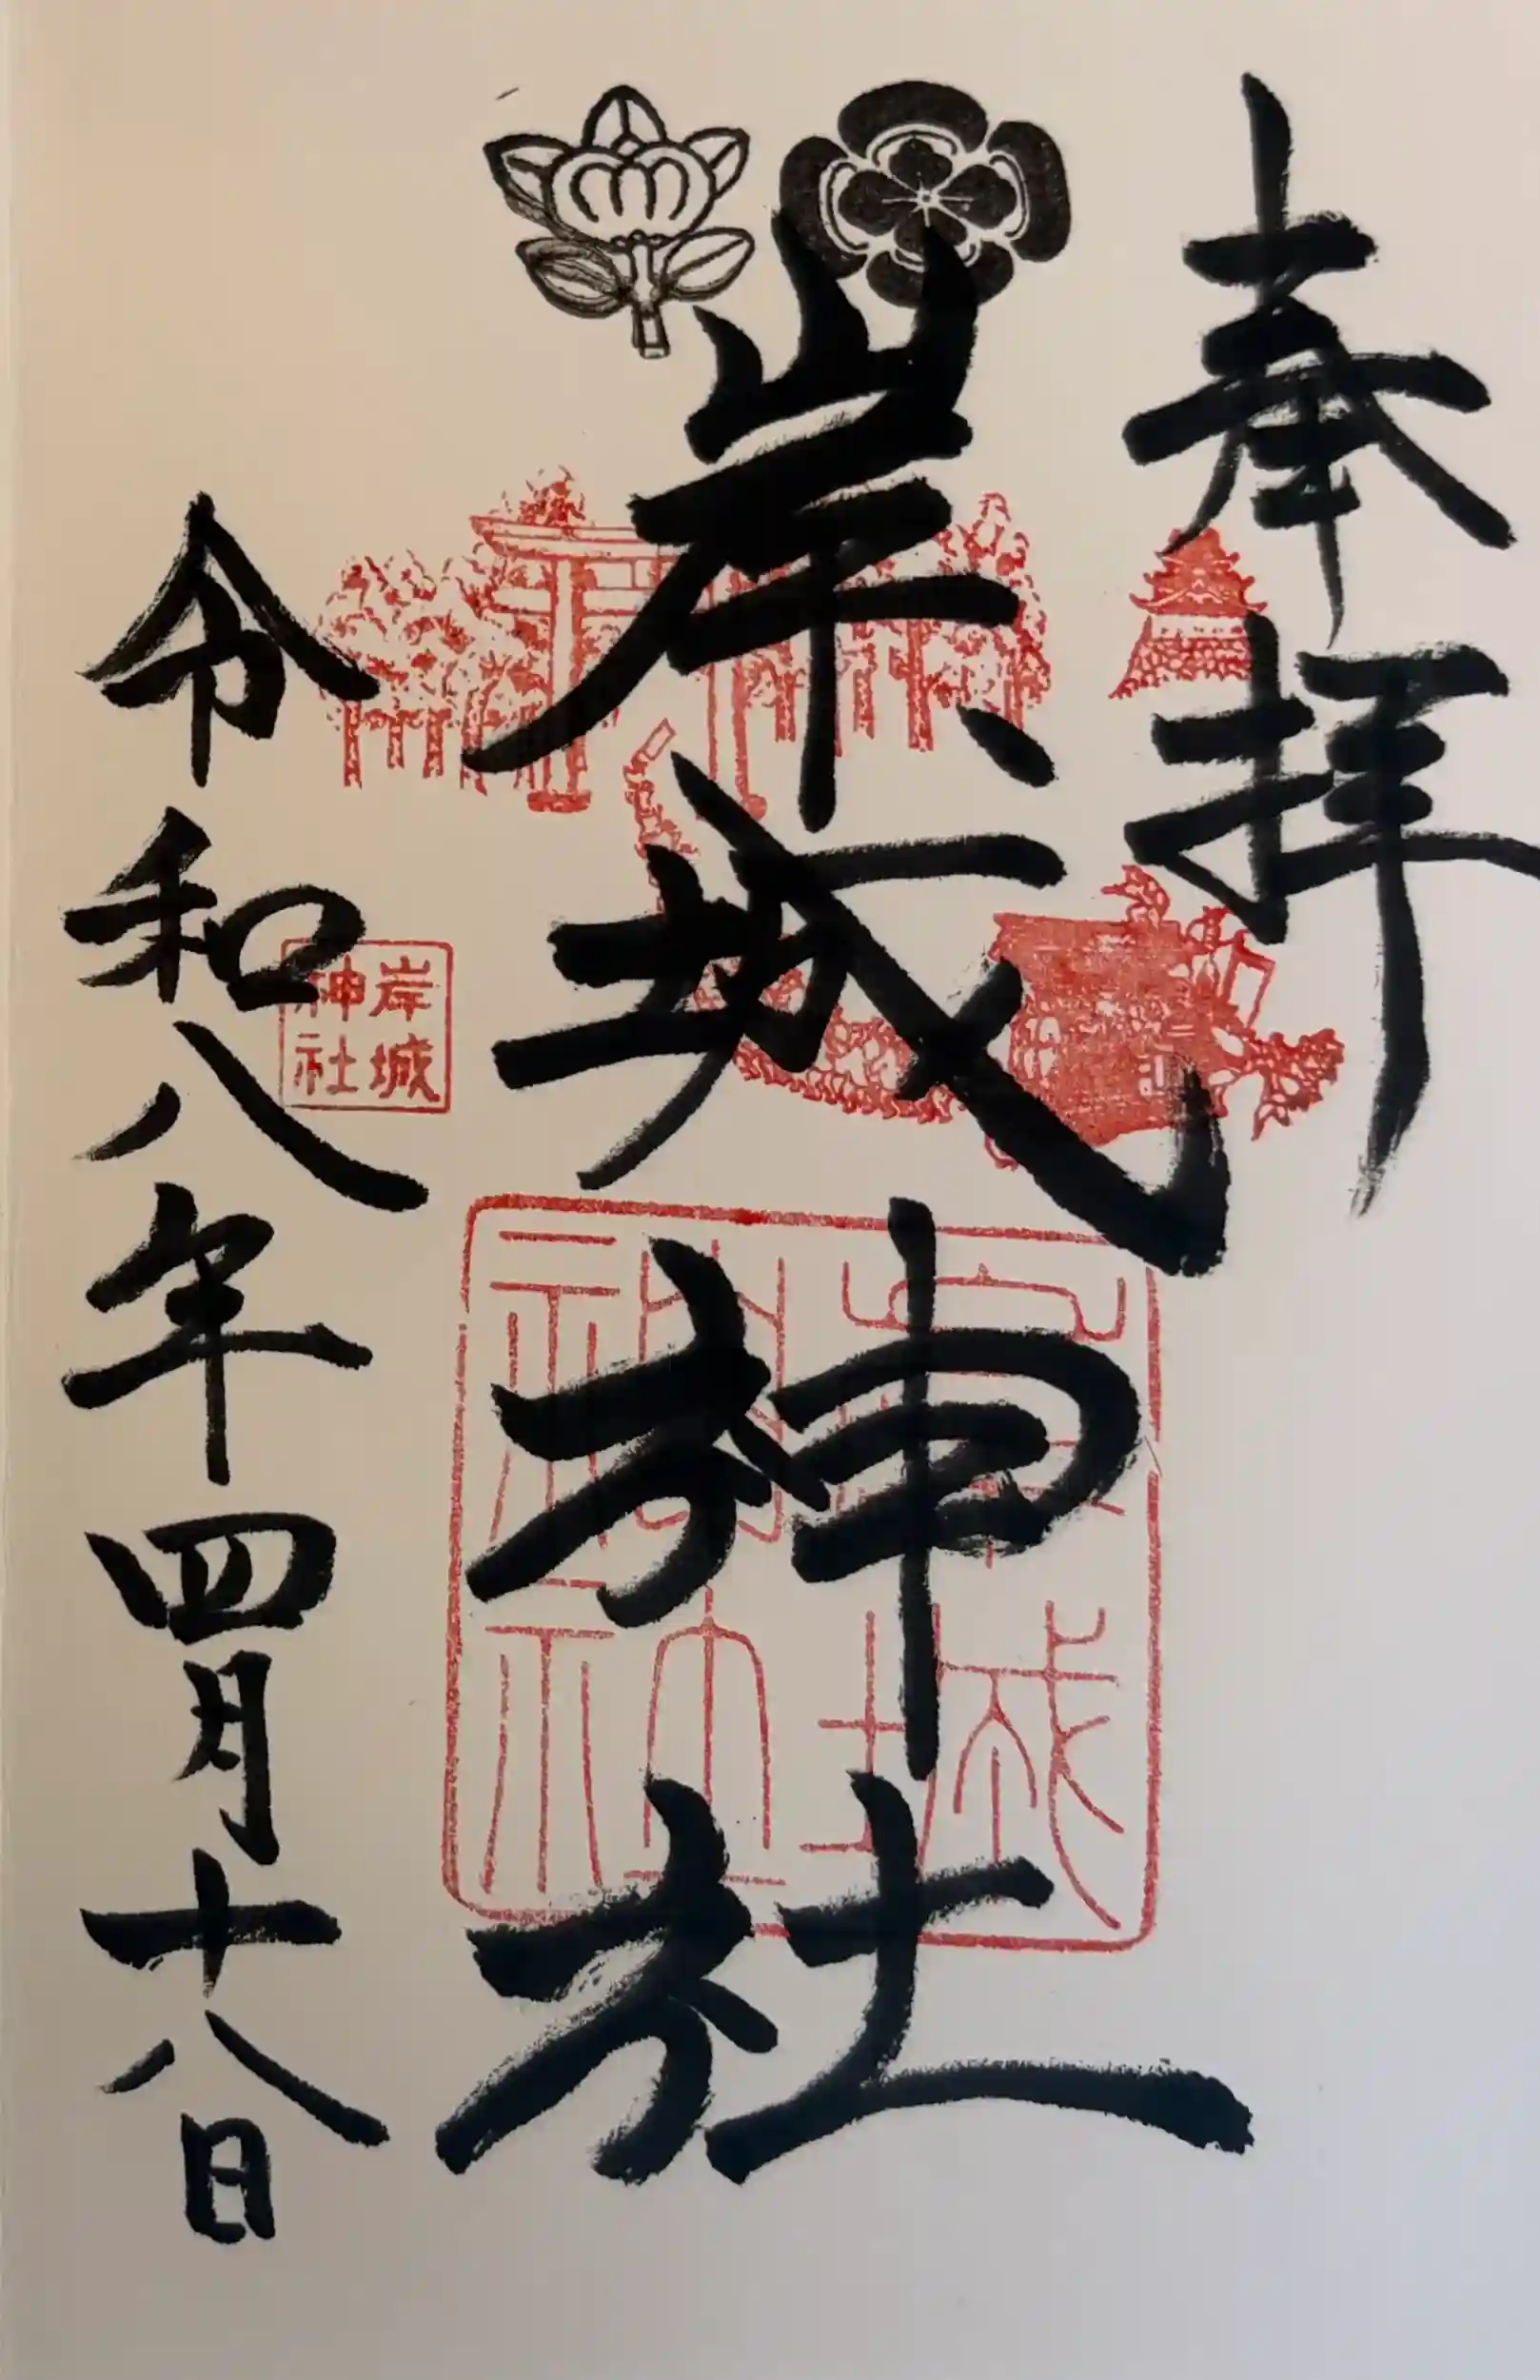 奉拝
岸城神社
令和八年四月十八日
岸城
神社
岸城
神社